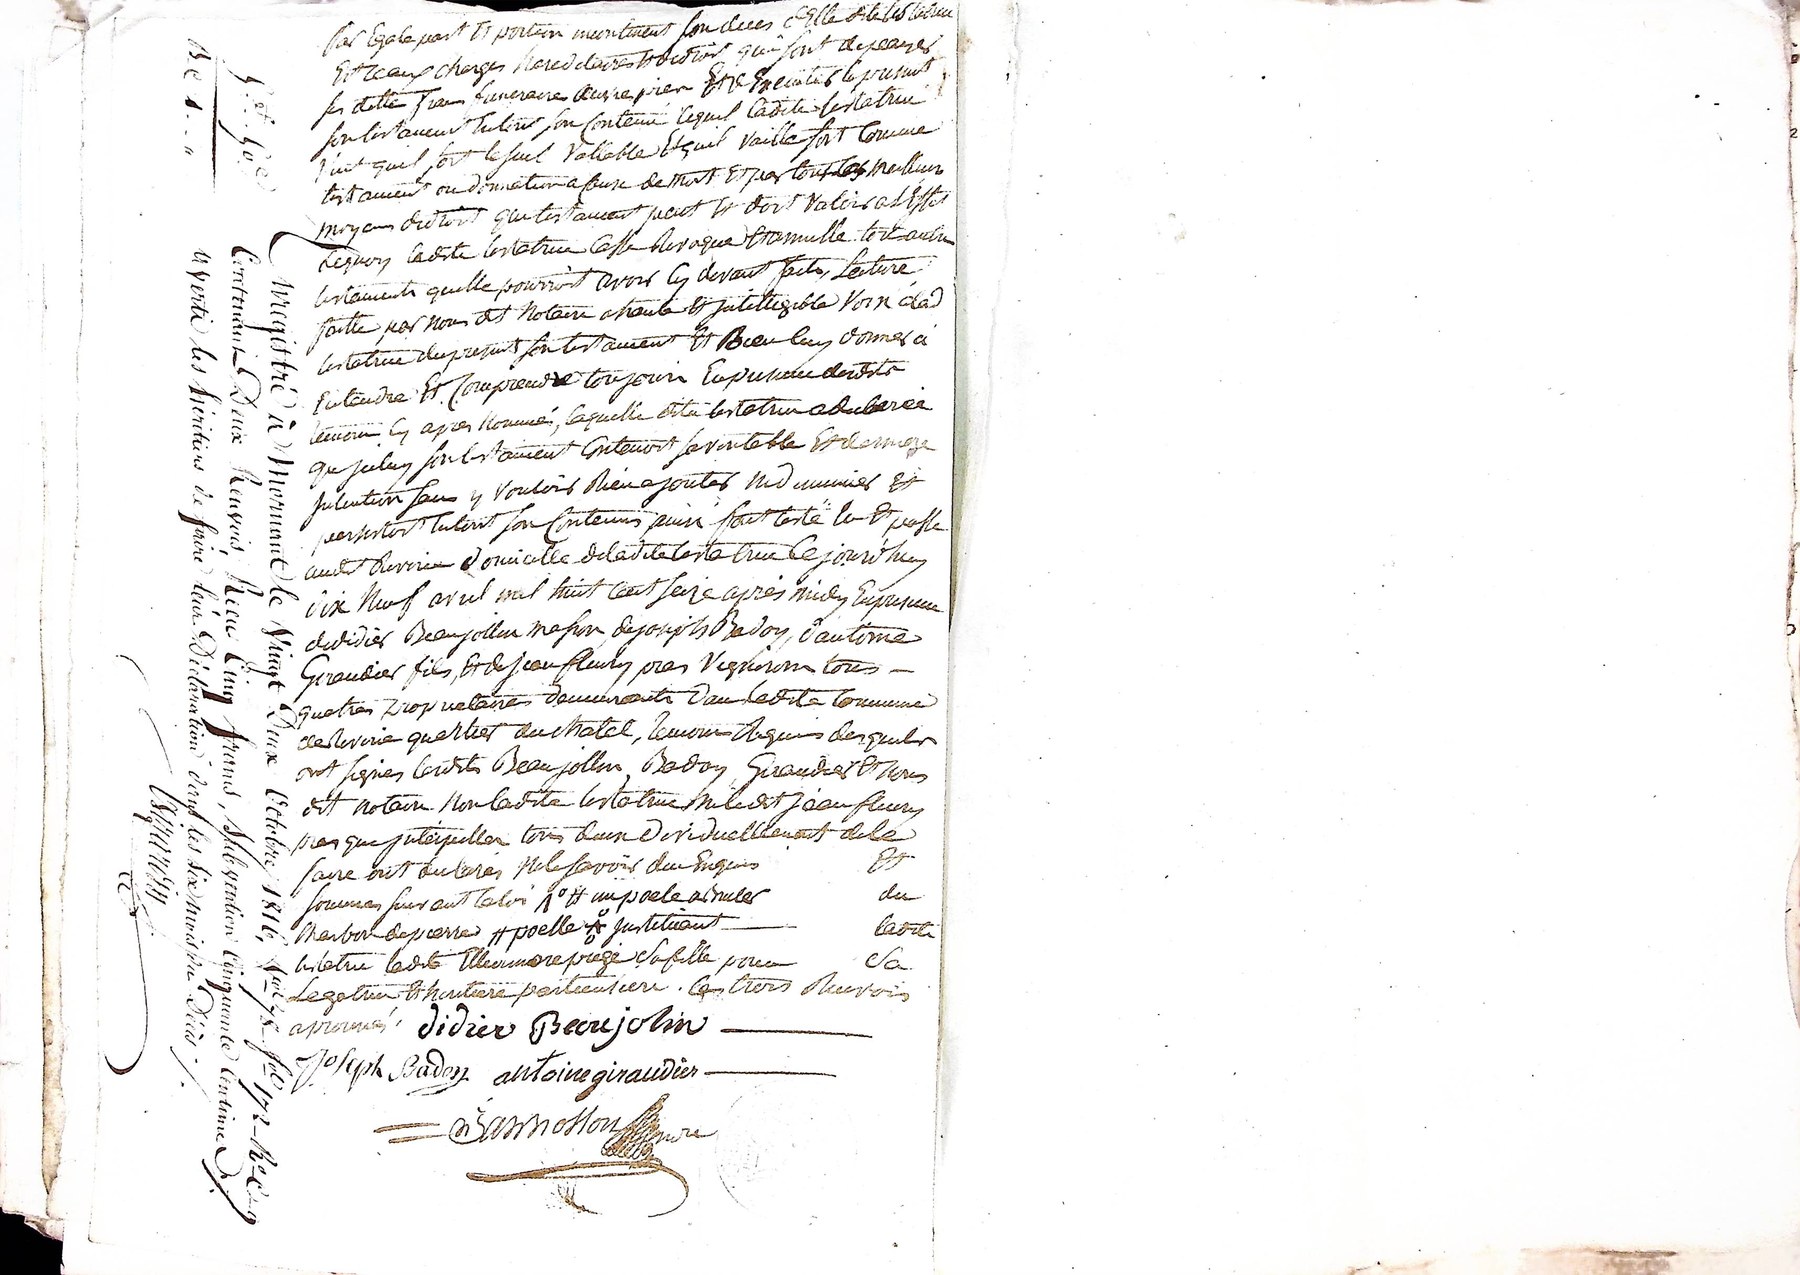 par Egale part et portion incontinent son deces d'Elle dite testatrice
Et Ceaux charges hereditaires et de droit qui sont de payer
ses dette frais funeraires œuvre pies Et d'Executer le present
son testament selont son Contenu lequel ladite testatrice
veut quil soit le seul Vallable Et quil vaille soit Comme
testament ou donnation a Cause de mort Et par tous les meilleurs
moyens de droit que testament peut Et doit Valoir a l'Effet
de quoy ladite testatrice Casse Revoque Et annulle tout autre
testaments quelle pourroit avoir Cy devant faits, Lecture
faitte par Nous dit Notaire a haute Et jntelligible Voix a lad
testatrice du present son testament Et Bien luy donner a
Entendre Et Comprendre toujours En presence desdits
temoins Cy apres Nommés, laquelle dite testatrice a declarée
que jceluy son testament Contenoit sa veritable Et derniere
jntention sans y Vouloir Rien ajouter ny diminuer Et
persistoit selont son Contenus, ainsi fait testé lu Et passé
audit Riverie domicille de ladite testatrice Ce jourd'huy
dix Neuf avril mil huit Cent seize apres midy En presence
de didier Beaujollin masson de joseph Badoy, d'antoine
Giraudier fils, Et de jean fleury pras Vigneron tous
quatres proprietaires demeurants dans ladite Commune
de Riverie quartier du chatel, temoins Requis desquels
ont signés lesdits Beaujollin, Badoy, Giraudier Et Nous
dit notaire Non ladite testatrice Ni ledit jean fleury
pras que jnterpellés tous deux jndividuellement de le
faire ont declarés Ne le savoir du Enquis Et
sommés suivant la loi 1° # un poele a bruler du
charbon de pierre # poelle # jnstituant ladite
testatrice ladite sa fille pour Sa
Legatrice Et heritiere particuliere. Les trois Renvois
aprouvés. didier Beaujolin
Joseph Badoy antoine giraudier
Bannosson Nore
Enregistré à Mornant le Vingt Deux Octobre 1816, fol. 72 Reçu
Contenant Deux Renvois Reçu Cinq francs, Subvention Cinquante Centimes
Averti les héritiers de faire leur Déclaration dans les six mois du Décès.